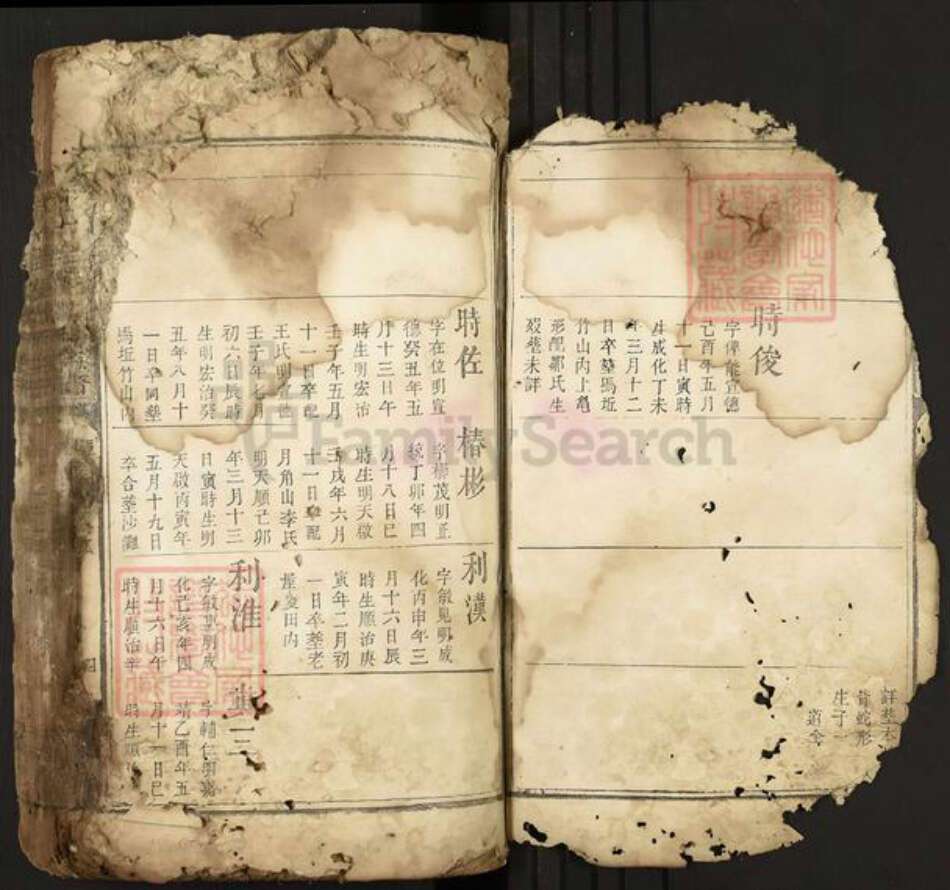 時俊
字俾能宣德
己酉年五月
十一日寅時
生成化丁未
年三月十二
日卒塟馬坵
竹山內上亀
形配鄒氏生
歿塟未詳
詳塟本
背蛇形
生子一
時佐
字在位明宣
德癸丑年五
月十三日午
時生明宏治
壬子年五月
十一日卒配
王氏明宣德
壬子年七月
初六日辰時
生明宏治癸
丑年八月十
一日卒同塟
馬坵竹山內
椿彬
茂明正
丁卯年四
月十八日巳
時生明天啟
壬戌年六月
十一日卒配
月角山李氏
明天順己卯
年三月十三
日寅時生明
天啟丙寅年
五月十九日
卒合塟沙灘
利漢
字敏見明成
化丙申年三
月十六日辰
時生順治庚
寅年二月初
一日卒塟老
屋凌田內
利淮
字敏
化己亥年四
月十六日午
時生順治辛
三
字輔仁明嘉
靖乙酉年五
月十一日巳
時生順
FamilySearch